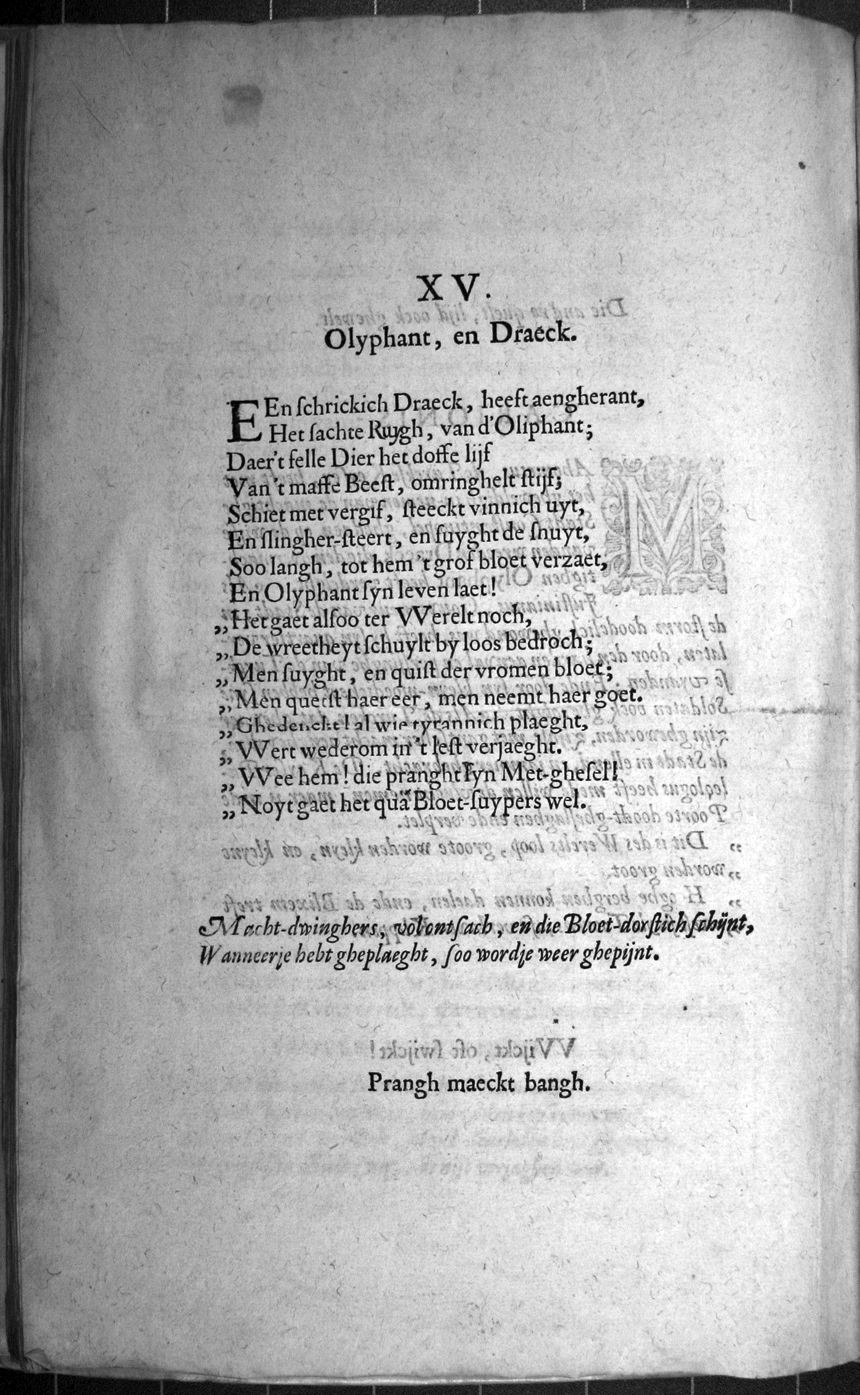 XV.
Olyphant, en Draeck.
EEn ſchrickich Draeck, heeft aengherant,
Het ſachte Ruygh, van d'Oliphant;
Daer't felle Dier het doffe lijf
Van 't maſſe Beeſt, omringhelt ſtijf;
Schiet met vergif, ſteeckt vinnich uyt,
En ſlingher-ſteert, en ſuyght de ſnuyt,
Soo langh, tot hem 't grof bloet verzaet,
En Olyphant ſyn leven laet!
„Het gaet alſoo ter VVerelt noch,
„De wreetheyt ſchuylt by loos bedroch;
„Men ſuyght, en quiſt der vromen bloet;
„Men quetſt haer eer, men neemt haer goet.
„Ghedenckt! al wie tyrannich plaeght,
„VVert wederom in 't leſt verjaeght.
„VVee hem! die pranght ſyn Met-gheſel!
„Noyt gaet het quâ Bloet-ſuypers wel.
Macht-dwinghers, vol ontſach, en die Bloet-dorſtich ſchijnt,
Wanneerje hebt gheplaeght, ſoo wordje weer ghepijnt.
Prangh maeckt bangh.